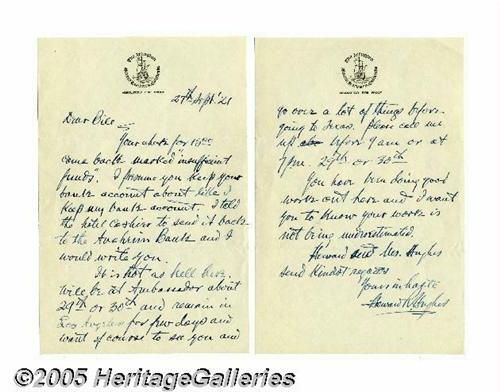 The Arlington
27th Sept. '21
Dear Bill –
Your check for 15.00
came back marked "insufficient
funds". I presume you keep your
bank account about like I
keep my bank account. I told
the hotel cashier to send it back
to the Bank and I
would write you.
It is hot as hell here.
will be at Ambassador about
29th or 30th and remain in
Los Angeles for few days and
want of course to see you and
go over a lot of things before
going to Texas. Please call me
up before 9 am or at
7 P.M. 29th or 30th
You have been doing good
work out here and I want
you to know your work is
not being underestimated.
Howard and Mrs. Hughes
send kindest regards
Yours in haste
Howard R Hughes
©2005 HeritageGalleries